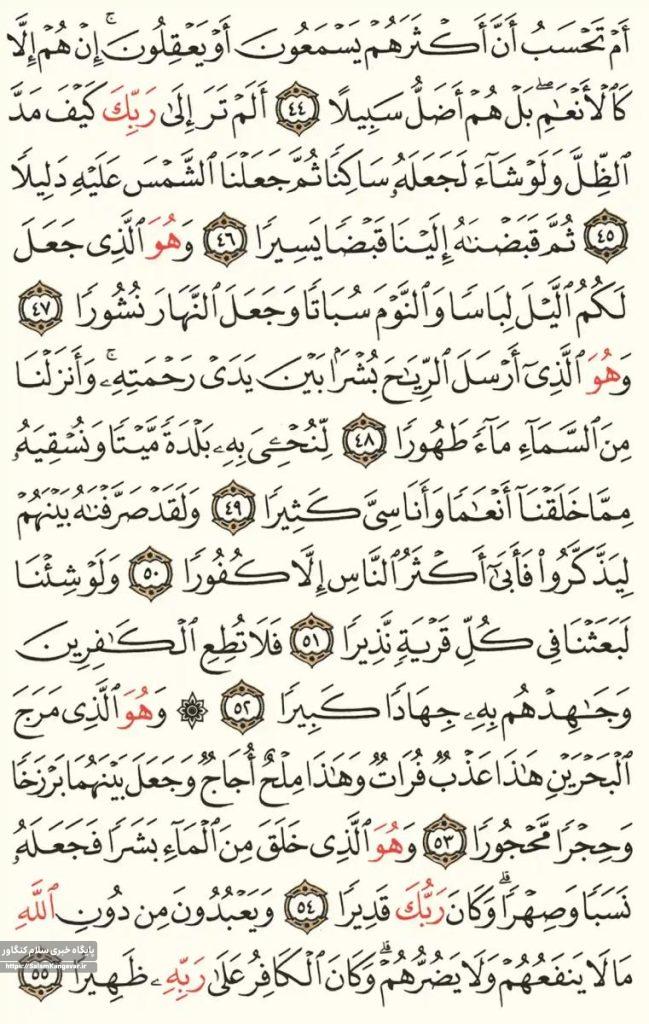 أَمْ تَحْسَبُ أَنَّ أَكْثَرَهُمْ يَسْمَعُونَ أَوْ يَعْقِلُونَ ۚ إِنْ هُمْ إِلَّا
كَٱلْأَنْعَٰمِ ۖ بَلْ هُمْ أَضَلُّ سَبِيلًا ٤٤ أَلَمْ تَرَ إِلَىٰ رَبِّكَ كَيْفَ مَدَّ
ٱلظِّلَّ وَلَوْ شَآءَ لَجَعَلَهُۥ سَاكِنًا ثُمَّ جَعَلْنَا ٱلشَّمْسَ عَلَيْهِ دَلِيلًا
٤٥ ثُمَّ قَبَضْنَٰهُ إِلَيْنَا قَبْضًا يَسِيرًا ٤٦ وَهُوَ ٱلَّذِى جَعَلَ
لَكُمُ ٱلَّيْلَ لِبَاسًا وَٱلنَّوْمَ سُبَاتًا وَجَعَلَ ٱلنَّهَارَ نُشُورًا ٤٧
وَهُوَ ٱلَّذِىٓ أَرْسَلَ ٱلرِّيَٰحَ بُشْرًۢا بَيْنَ يَدَىْ رَحْمَتِهِۦ ۚ وَأَنزَلْنَا
مِنَ ٱلسَّمَآءِ مَآءً طَهُورًا ٤٨ لِّنُحْۦِىَ بِهِۦ بَلْدَةً مَّيْتًا وَنُسْقِيَهُۥ
مِمَّا خَلَقْنَآ أَنْعَٰمًا وَأَنَاسِىَّ كَثِيرًا ٤٩ وَلَقَدْ صَرَّفْنَٰهُ بَيْنَهُمْ
لِيَذَّكَّرُوا۟ فَأَبَىٰٓ أَكْثَرُ ٱلنَّاسِ إِلَّا كُفُورًا ٥٠ وَلَوْ شِئْنَا
لَبَعَثْنَا فِى كُلِّ قَرْيَةٍ نَّذِيرًا ٥١ فَلَا تُطِعِ ٱلْكَٰفِرِينَ
وَجَٰهِدْهُم بِهِۦ جِهَادًا كَبِيرًا ٥٢ ۞ وَهُوَ ٱلَّذِى مَرَجَ
ٱلْبَحْرَيْنِ هَٰذَا عَذْبٌ فُرَاتٌ وَهَٰذَا مِلْحٌ أُجَاجٌ وَجَعَلَ بَيْنَهُمَا بَرْزَخًا
وَحِجْرًا مَّحْجُورًا ٥٣ وَهُوَ ٱلَّذِى خَلَقَ مِنَ ٱلْمَآءِ بَشَرًا فَجَعَلَهُۥ
نَسَبًا وَصِهْرًا ۗ وَكَانَ رَبُّكَ قَدِيرًا ٥٤ وَيَعْبُدُونَ مِن دُونِ ٱللَّهِ
مَا لَا يَنفَعُهُمْ وَلَا يَضُرُّهُمْ ۗ وَكَانَ ٱلْكَافِرُ عَلَىٰ رَبِّهِۦ ظَهِيرًا ٥٥
پایگاه خبری سلام کنگاور
https://SalamKangavar.ir